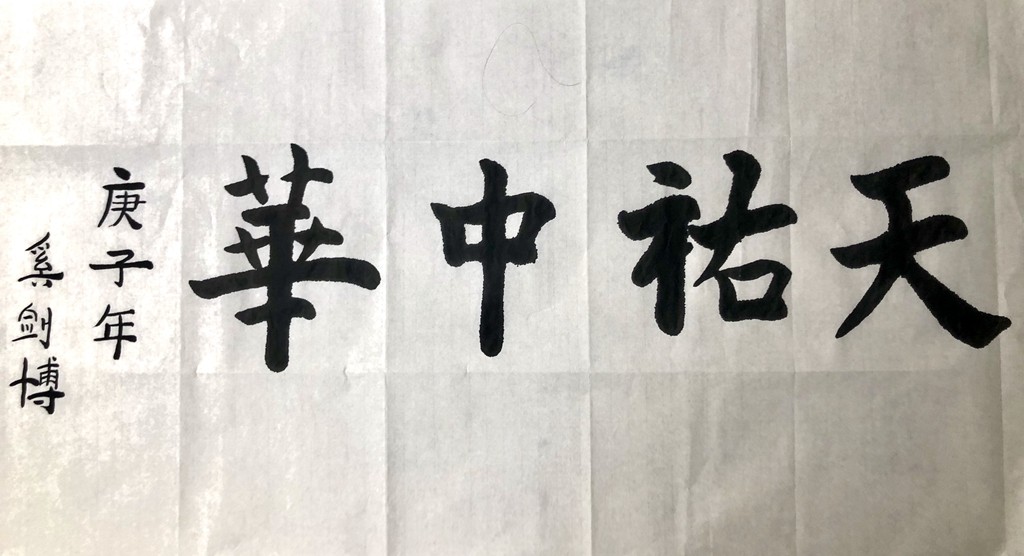 天祐中華
庚子年
奚剑博